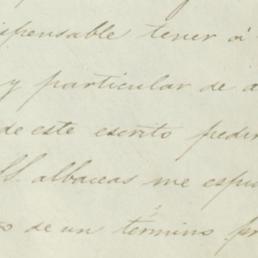 ispensable tener á
y particular de a
de este escrito pedir
SS. albaceas me espi
o de un término pr